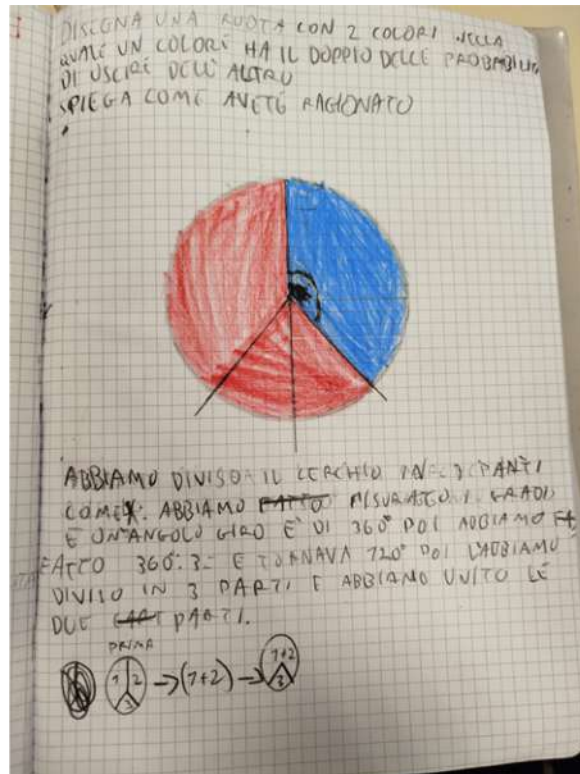 DISEGNA UNA RUOTA CON 2 COLORI NELLA
QUALE UN COLORE HA IL DOPPIO DELLE PROBABILITÀ
DI USCIRE DELL'ALTRO
SPIEGA COME AVETE RAGIONATO
ABBIAMO DIVISO IL CERCHIO IN PARTI
COME. ABBIAMO FATTO MISURATO I GRADI
E UN ANGOLO GIRO E' DI 360° POI ABBIAMO FA
FATTO 360:3= E TORNAVA 120° POI L'ABBIAMO
DIVISO IN 3 PARTI E ABBIAMO UNITO LE
DUE PARTI.
PRIMA
1 2 3 → (1+2) → 1+2 3